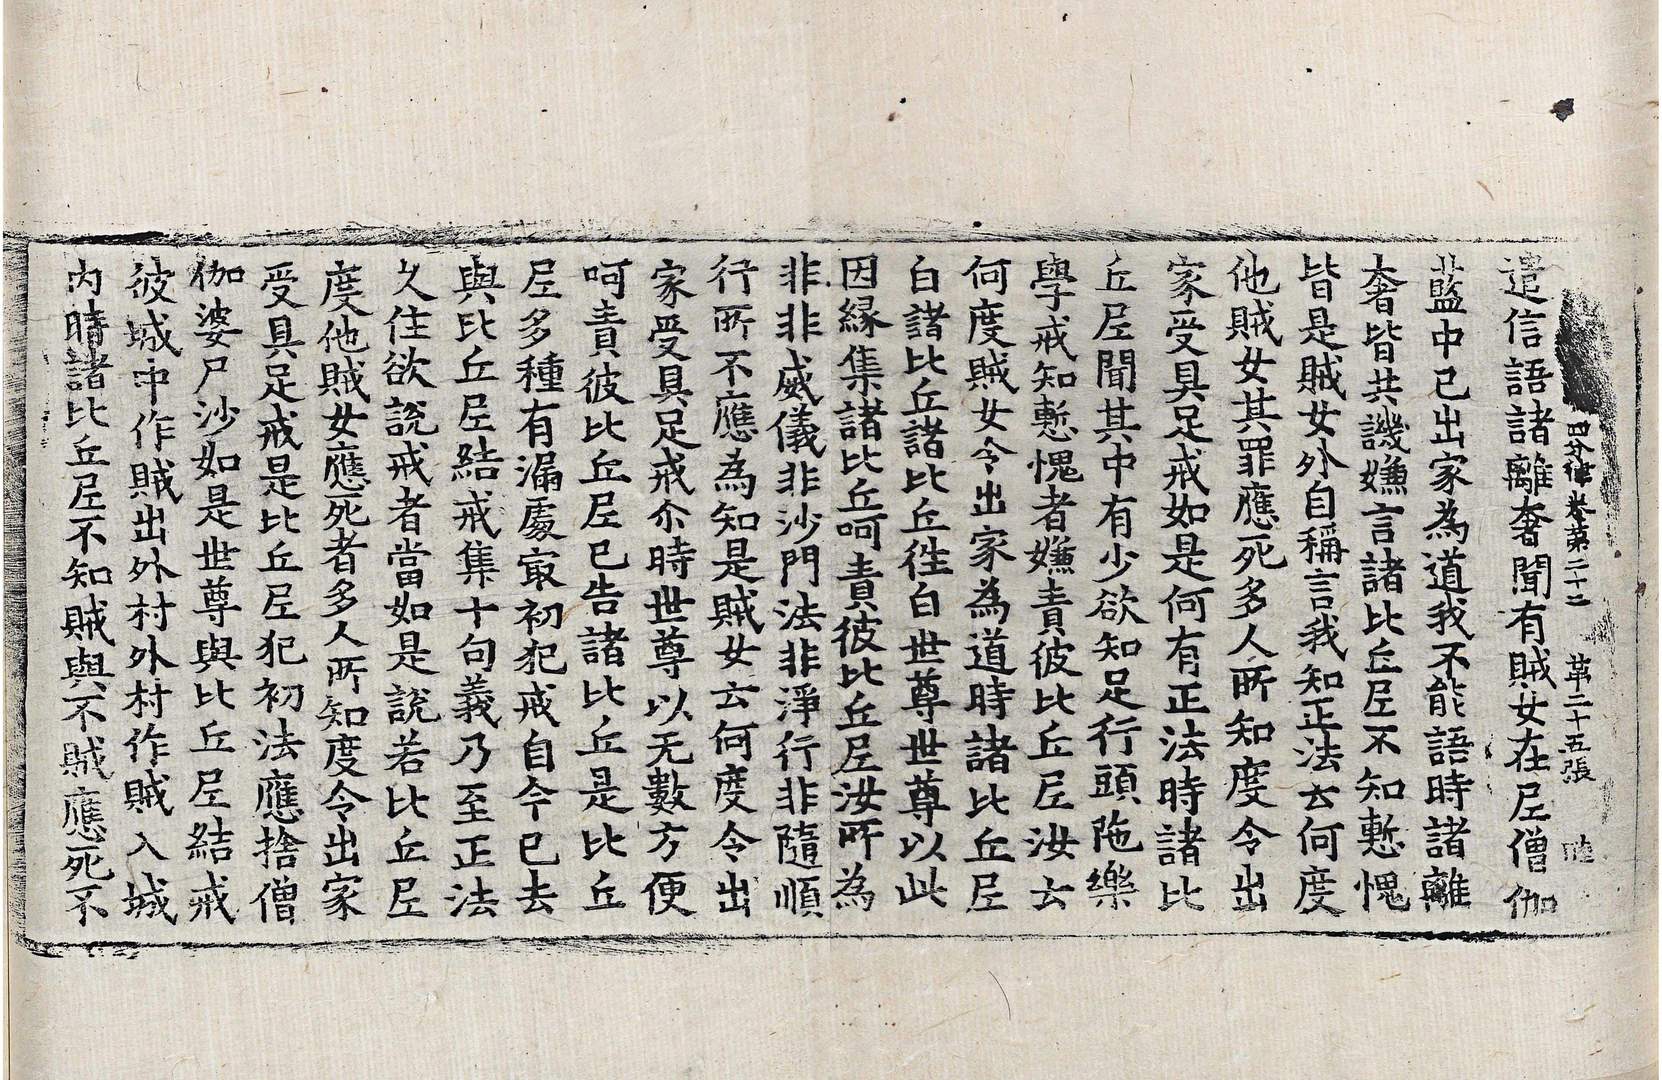 四分律卷第二十二 第二十五張 睦
遣信語諸離奢聞有賊女在尼僧伽
藍中已出家為道我不能語時諸離
奢皆共譏嫌言諸比丘尼不知慙愧
皆是賊女外自稱言我知正法云何度
他賊女其罪應死多人所知度令出
家受具足戒如是何有正法時諸比
丘尼聞其中有少欲知足行頭陁樂
學戒知慙愧者嫌責彼比丘尼汝云
何度賊女令出家為道時諸比丘尼
白諸比丘諸比丘徃白世尊世尊以此
因緣集諸比丘呵責彼比丘尼汝所為
非非威儀非沙門法非淨行非隨順
行所不應為知是賊女云何度令出
家受具足戒尒時世尊以无數方便
呵責彼比丘尼已告諸比丘是比丘
尼多種有漏處冣初犯戒自今已去
與比丘尼結戒集十句義乃至正法
久住欲說戒者當如是說若比丘尼
度他賊女應死者多人所知度令出家
受具足戒是比丘尼犯初法應捨僧
伽婆尸沙如是世尊與比丘尼結戒
彼城中作賊出外村外村作賊入城
內時諸比丘尼不知賊與不賊應死不